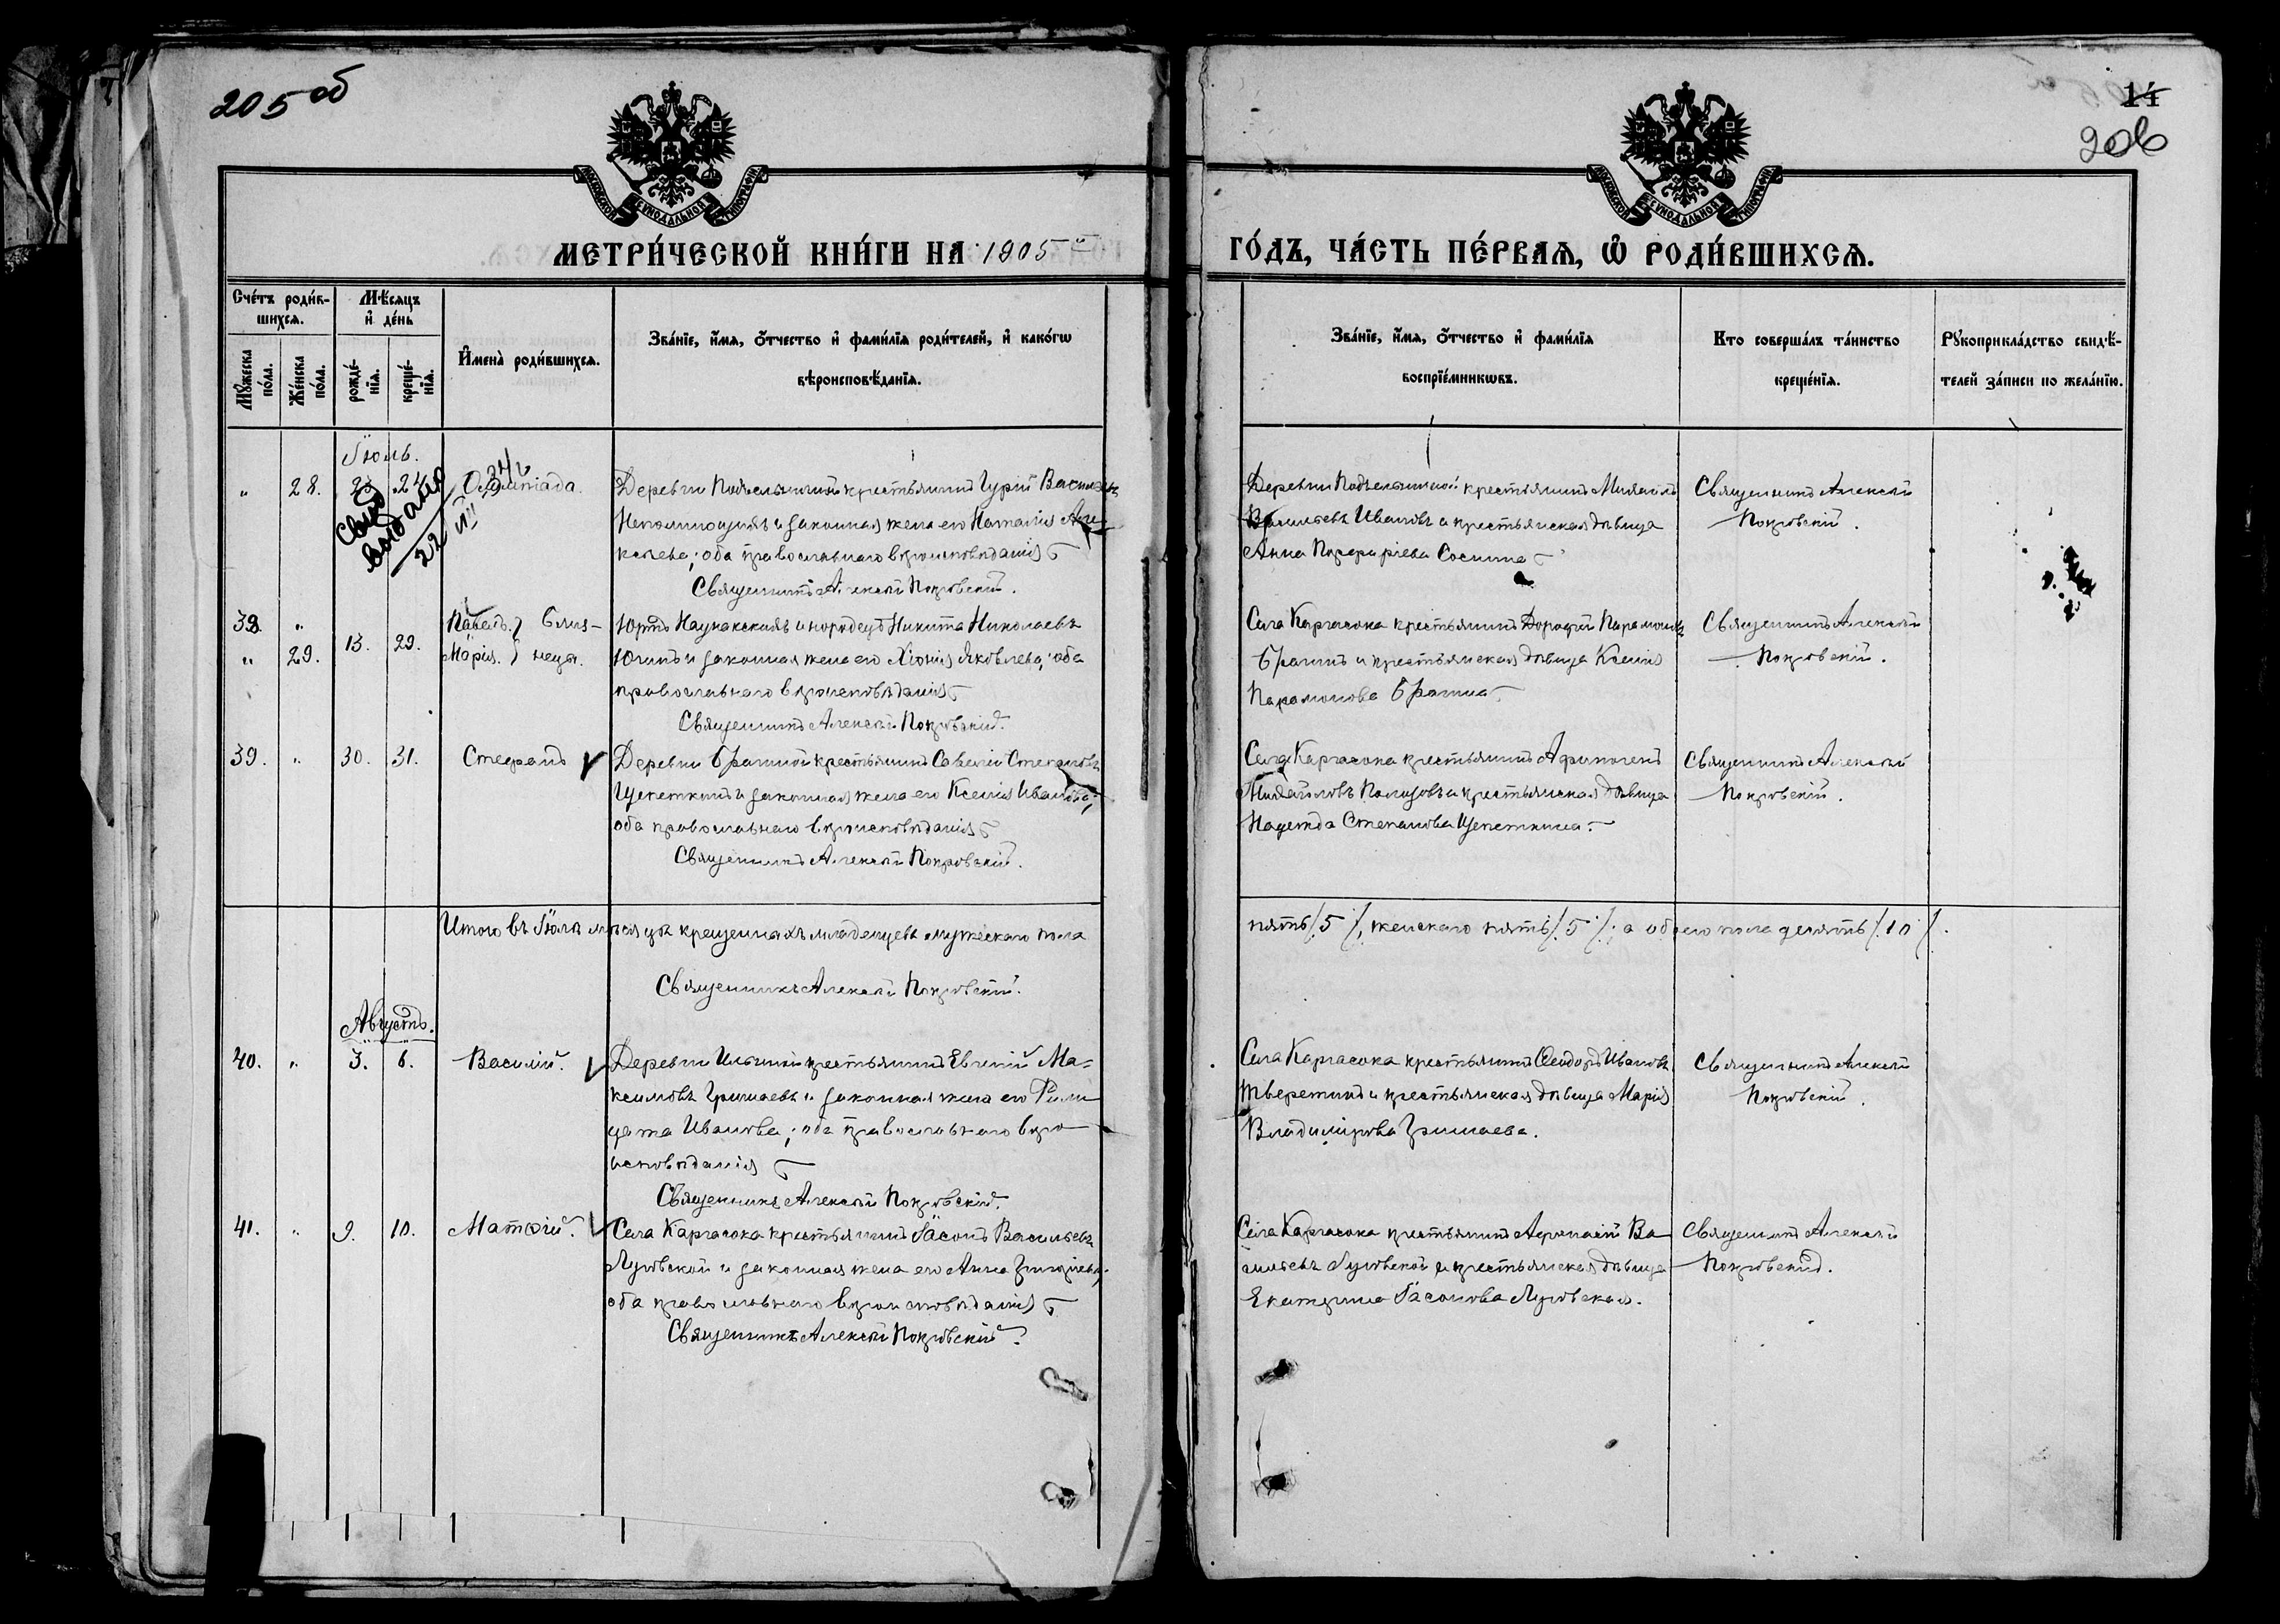 205 об
14
206
МОСКОВСКОЙ СѴНОДАЛЬНОЙ ТИПОГРАФІИ
МОСКОВСКОЙ СѴНОДАЛЬНОЙ ТИПОГРАФІИ
МЕТРИ́ЧЕСКОЙ КНИ́ГИ НА 1905 й
ГО́ДЪ, ЧА́СТЬ ПЕ́РВАѦ, Ѽ РОДИ́ВШИХСѦ.
Сче́тъ роди́в-
шихсѧ.
Мѣ́сѧцъ
и҆ де́нь
Мꙋ́жеска по́ла.
Же́нска по́ла.
рожде́-нїѧ.
креще́-нїѧ.
И҆мена̀ роди́вшихсѧ.
Зва́нїе, и҆́мѧ, ѻ҆́тчество и҆ фами́лїѧ роди́телей, и҆ како́гѡ
вѣроисповѣ́данїѧ.
Зва́нїе, и҆́мѧ, ѻ҆́тчество и҆ фами́лїѧ
воспрїе́мникѡвъ.
Кто соверша́лъ та́инство
креще́нїѧ.
Рꙋкоприкла́дство свидѣ́-
телей за́писи по жела́нїю.
Іюль.
" 28. 24. Олимпіада. Деревни Подъельничной крестьянинъ Гурій Васильевъ
Непомнющихъ и законная жена его Наталія
оба православнаго вѣроисповѣданія
Священникъ Алексѣй Покровскій.
Свид
выдано
22
Деревни Подъельничной крестьянинъ Михаилъ
Васильевъ Ивановъ и крестьянская дѣвица
Анна Порфиріева Соснина
Священникъ Алексѣй
Покровскій.
38. " Павелъ. } Близ-
" 29. 13. 29. Марія. } нецы.
Юртъ инородецъ Никита Николаевъ
Югинъ и законная жена его Хіонія Яковлева; оба
православнаго вѣроисповѣданія
Священникъ Алексѣй Покровскій.
Села Каргасока крестьянинъ Дорофей Парамоновъ
Брагинъ и крестьянская дѣвица Ксенія
Парамонова Брагина
Священникъ Алексѣй
Покровскій.
39. " 30. 31. Стефанъ Деревни Брагиной крестьянинъ Савелій Степановъ
Щепеткинъ и законная жена его Ксенія Иванова;
оба православнаго вѣроисповѣданія
Священникъ Алексѣй Покровскій.
Села Каргасока крестьянинъ Афиногенъ
Михайловъ и крестьянская дѣвица
Надежда Степанова Щепеткина.
Священникъ Алексѣй
Покровскій.
Итого въ Іюлѣ мѣсяцѣ крещенныхъ младенцевъ мужескаго пола
пять /5/, женскаго пять /5/; а обоего пола десять /10/.
Священникъ Алексѣй Покровскій.
Августъ.
40. " 3. 6. Василій. Деревни Ильиной крестьянинъ Евгеній Ма-
ксимовъ Гришаевъ и законная жена его Фили-
цата Иванова; оба православнаго вѣро-
исповѣданія
Священникъ Алексѣй Покровскій.
Села Каргасока крестьянинъ Ѳеодоръ Ивановъ
Тверетинъ и крестьянская дѣвица Марія
Владимірова Гришаева.
Священникъ Алексѣй
Покровскій.
41. " 9. 10. Матѳій. Села Каргасока крестьянинъ Іасонъ Васильевъ
Луговской и законная жена его Анна Григорьева;
оба православнаго вѣроисповѣданія
Священникъ Алексѣй Покровскій.
Села Каргасока крестьянинъ Афанасій Ва-
сильевъ Луговской и крестьянская дѣвица
Екатерина Іасонова Луговская.
Священникъ Алексѣй
Покровскій.